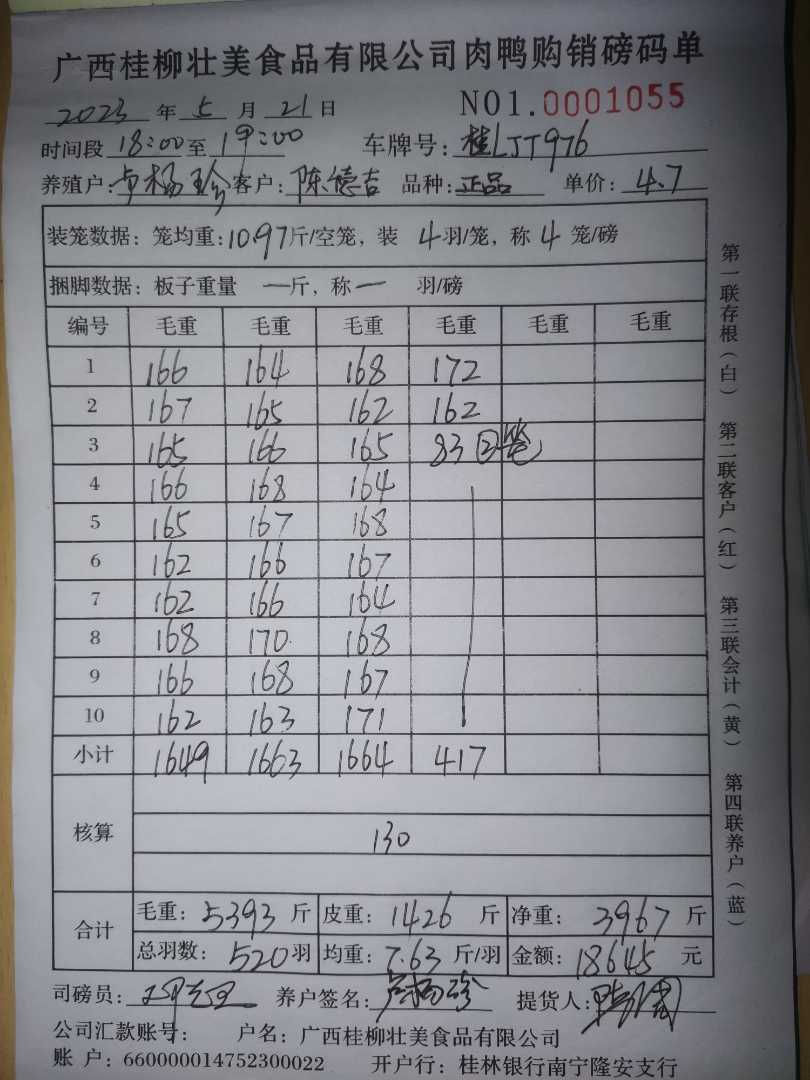 广西桂柳壮美食品有限公司肉鸭购销磅码单
2023 年 5 月 21 日 NO1.0001055
时间段 18:00 至 19:00 车牌号: 桂LJT976
养殖户: 卢杨珍 客户: 陈德吉 品种: 正品 单价: 4.7
装笼数据: 笼均重: 10.97 斤/空笼, 装 4 羽/笼, 称 4 笼/磅
捆脚数据: 板子重量 一 斤, 称 一 羽/磅
编号 毛重 毛重 毛重 毛重 毛重 毛重
1 166 164 168 172
2 167 165 162 162
3 165 166 165 83 2笼
4 166 168 164
5 165 167 168
6 162 166 167
7 162 166 164
8 168 170 168
9 166 168 167
10 162 163 171
小计 1649 1663 1664 417
核算
130
合计
毛重: 5393 斤 皮重: 1426 斤 净重: 3967 斤
总羽数: 520 羽 均重: 7.63 斤/羽 金额: 18645 元
司磅员: 养户签名: 卢杨珍 提货人:
公司汇款账号: 户名: 广西桂柳壮美食品有限公司
账 户: 660000014752300022 开户行: 桂林银行南宁隆安支行
第一联存根(白) 第二联客户(红) 第三联会计(黄) 第四联养户(蓝)